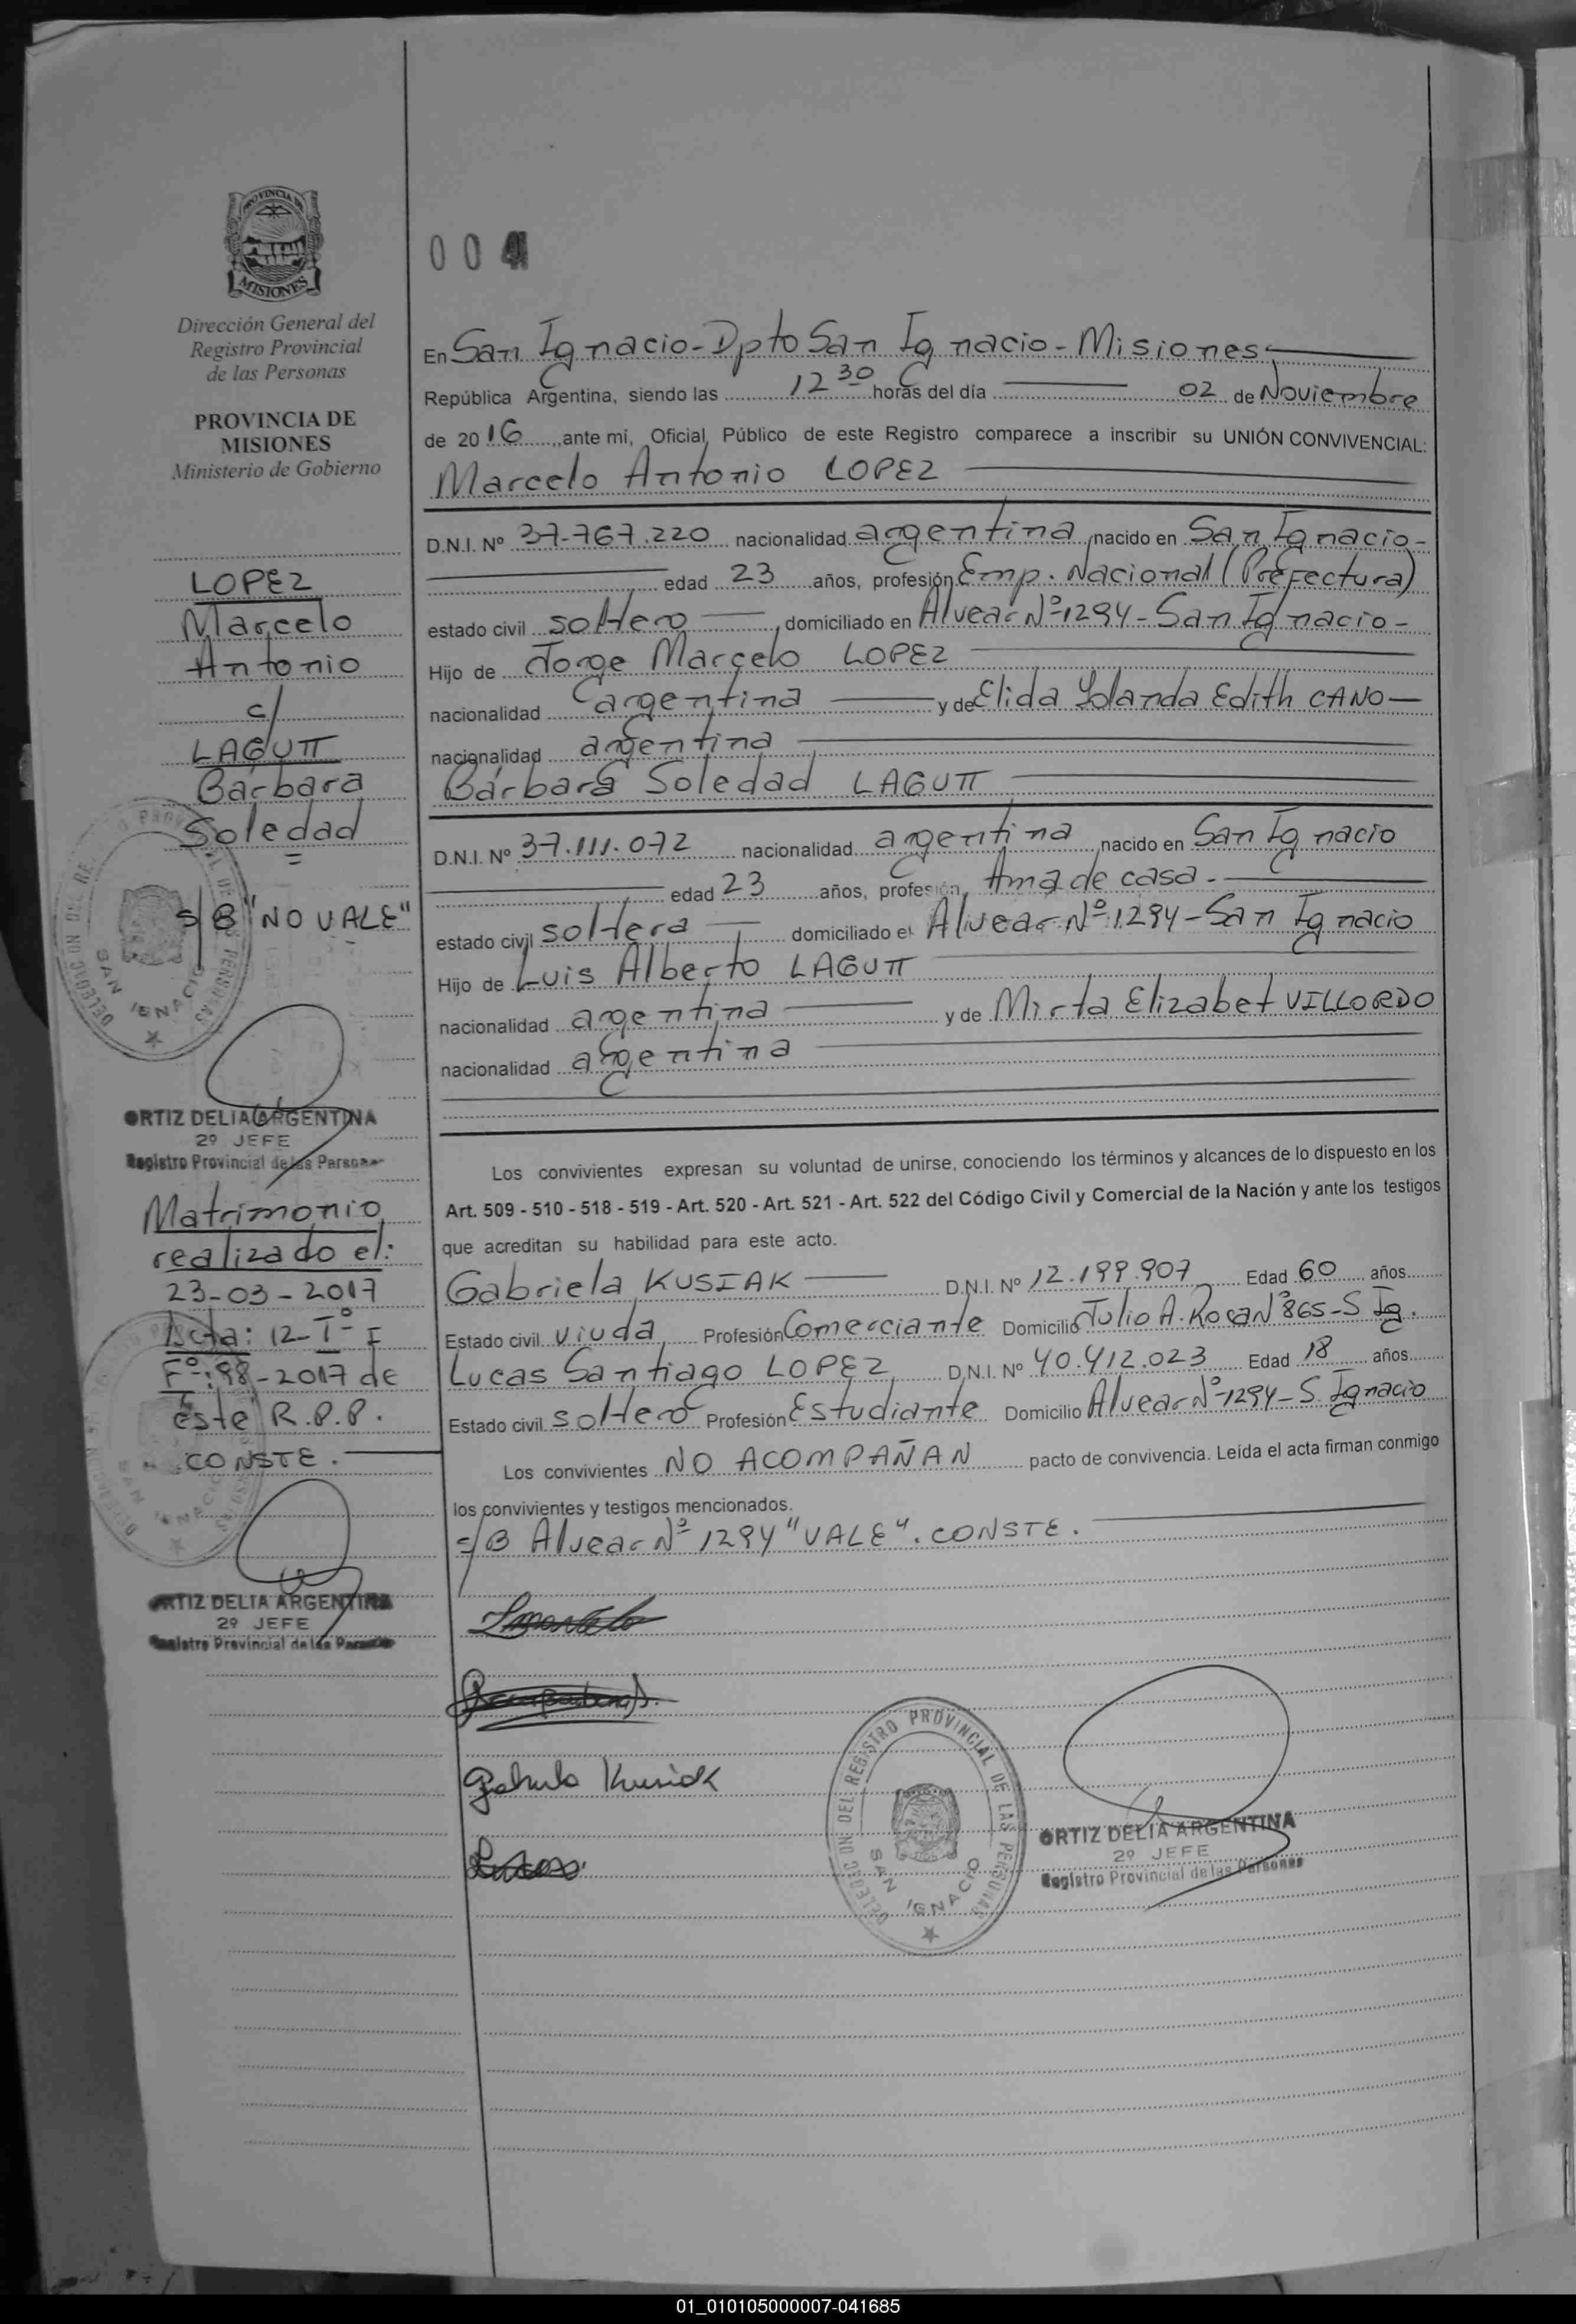 PROVINCIA DE
MISIONES
Dirección General del
Registro Provincial
de las Personas
PROVINCIA DE
MISIONES
Ministerio de Gobierno
LOPEZ
Marcelo
Antonio
c/
LAGUTT
Bárbara
Soledad
=
S/B "NO VALE"
DELEGACION DEL REGISTRO PROVINCIAL DE LAS PERSONAS
SAN IGNACIO
ORTIZ DELIA ARGENTINA
2º JEFE
Registro Provincial de las Personas
Matrimonio
realizado el:
23-03-2017
Acta: 12-Tº I
Fº: 98-2017 de
este R.P.P.
CONSTE.
SAN IGNACIO
ORTIZ DELIA ARGENTINA
2º JEFE
Registro Provincial de las Personas
004
En San Ignacio-Dpto San Ignacio-Misiones
República Argentina, siendo las 12 30 horas del día 02 de Noviembre
de 2016, ante mi, Oficial Público de este Registro comparece a inscribir su UNIÓN CONVIVENCIAL:
Marcelo Antonio LOPEZ
D.N.I. Nº 37.767.220 nacionalidad argentina nacido en San Ignacio-
edad 23 años, profesión Emp. Nacional (Prefectura)
estado civil soltero domiciliado en Alvear Nº 1294-San Ignacio-
Hijo de Jorge Marcelo LOPEZ
nacionalidad argentina y de Elida Yolanda Edith CANO
nacionalidad argentina
Bárbara Soledad LAGUTT
D.N.I. Nº 37.111.072 nacionalidad argentina nacido en San Ignacio
edad 23 años, profesión, Ama de casa.
estado civil soltera domiciliado en Alvear Nº 1294-San Ignacio
Hijo de Luis Alberto LAGUTT
nacionalidad argentina y de Mirta Elizabet VILLORDO
nacionalidad argentina
Los convivientes expresan su voluntad de unirse, conociendo los términos y alcances de lo dispuesto en los
Art. 509 - 510 - 518 - 519 - Art. 520 - Art. 521 - Art. 522 del Código Civil y Comercial de la Nación y ante los testigos
que acreditan su habilidad para este acto.
Gabriela KUSIAK D.N.I. Nº 12.199.907 Edad 60 años
Estado civil viuda Profesión Comerciante Domicilio Julio A. Roca Nº 865-S Ig.
Lucas Santiago LOPEZ D.N.I. Nº 40.412.023 Edad 18 años
Estado civil soltero Profesión Estudiante Domicilio Alvear Nº 1294-S. Ignacio
Los convivientes NO ACOMPAÑAN pacto de convivencia. Leída el acta firman conmigo
los convivientes y testigos mencionados.
S/B Alvear Nº 1294 "VALE". CONSTE.
Gabriela Kusiak
DELEGACION DEL REGISTRO PROVINCIAL DE LAS PERSONAS
SAN IGNACIO
ORTIZ DELIA ARGENTINA
2º JEFE
Registro Provincial de las Personas
01_010105000007-041685